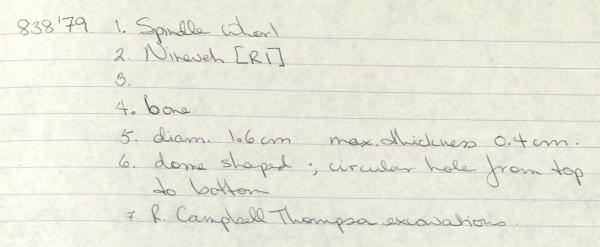 838'79 1. Spindle whorl
2. Nineveh [RI]
3.
4. bone
5. diam. 1.6cm max. thickness 0.4cm.
6. dome shaped ; circular hole from top
to bottom
7. R. Campbell Thompson excavations.